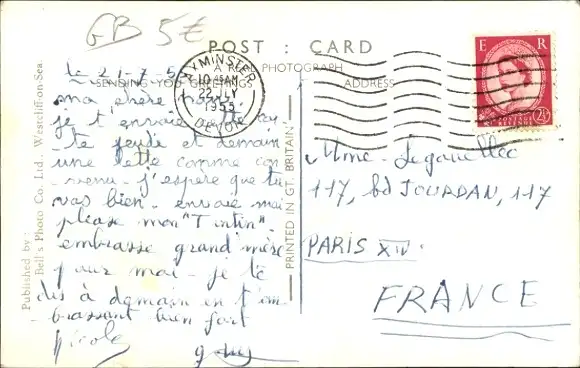 GB 5€
POST : CARD
A REAL PHOTOGRAPH
SENDING YOU GREETINGS
ADDRESS
AXMINSTER
10 45AM
22 JLY
1955
DEVON
E R
POSTAGE
2½
le 21-7-5
ma chère
je t'envoie
te jeudi et demain
une lettre comme con
venu. j'espère que tu
vas bien. envoie moi
please mon "Tintin".
embrasse grand'mère
pour moi. je te
dis à demain en t'em
brassant bien fort
Nicole
Mme
117, bd JOURDAN, 117
PARIS XIV.
FRANCE
PRINTED IN GT. BRITAIN
Published by :
Bell's Photo Co. Ltd., Westcliff-on-Sea